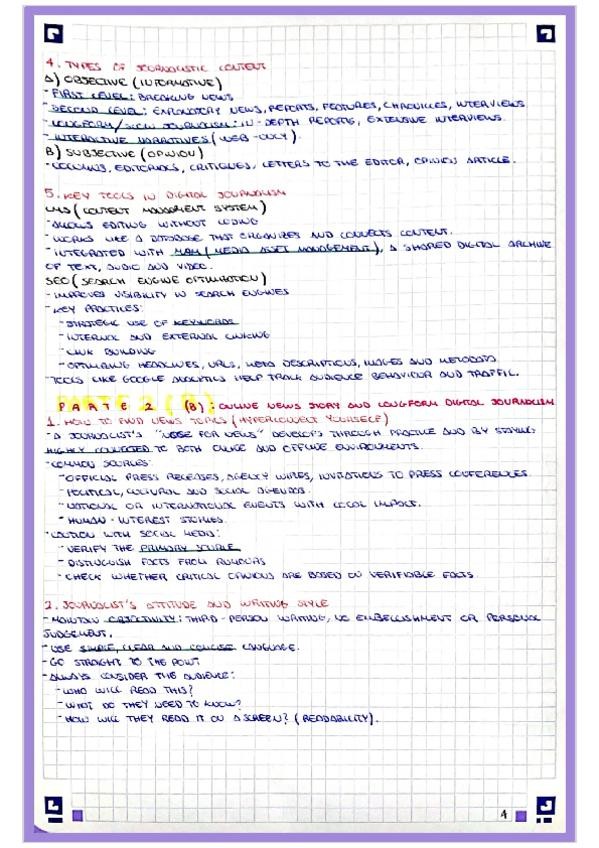 4. TYPES OF JOURNALISTIC CONTENT
A) OBJECTIVE (INFORMATIVE)
- FIRST LEVEL: BREAKING NEWS
- SECOND LEVEL: EXPLANATORY NEWS, REPORTS, FEATURES, CHRONICLES, INTERVIEWS
- LONGFORM/SLOW JOURNALISM: IN-DEPTH REPORTS, EXTENSIVE INTERVIEWS.
- INTERACTIVE NARRATIVES (WEB-ONLY).
B) SUBJECTIVE (OPINION)
- COLUMNS, EDITORIALS, CRITIQUES, LETTERS TO THE EDITOR, OPINION ARTICLE.
5. KEY TOOLS IN DIGITAL JOURNALISM
CMS (CONTENT MANAGEMENT SYSTEM)
- ALLOWS EDITING WITHOUT CODING
- WORKS LIKE A DATABASE THAT ORGANIZES AND CONNECTS CONTENT.
- INTEGRATED WITH MAM (MEDIA ASSET MANAGEMENT), A SHARED DIGITAL ARCHIVE
OF TEXT, AUDIO AND VIDEO.
SEO (SEARCH ENGINE OPTIMIZATION)
- IMPROVES VISIBILITY IN SEARCH ENGINES
- KEY PRACTICES:
- STRATEGIC USE OF KEYWORDS
- INTERNAL AND EXTERNAL LINKING
- LINK BUILDING
- OPTIMIZING HEADLINES, URLS, META DESCRIPTIONS, IMAGES AND METADATA
- TOOLS LIKE GOOGLE ANALYTICS HELP TRACK AUDIENCE BEHAVIOUR AND TRAFFIC.
PARTE 2 (B): ONLINE NEWS STORY AND LONGFORM DIGITAL JOURNALISM
1. HOW TO FIND NEWS TOPICS (HYPERCONNECT YOURSELF)
- A JOURNALIST'S "NOSE FOR NEWS" DEVELOPS THROUGH PRACTICE AND BY STAYING
HIGHLY CONNECTED TO BOTH ONLINE AND OFFLINE ENVIRONMENTS.
- COMMON SOURCES:
- OFFICIAL PRESS RELEASES, AGENCY WIRES, INVITATIONS TO PRESS CONFERENCES.
- POLITICAL, CULTURAL AND SOCIAL AGENDAS.
- NATIONAL OR INTERNATIONAL EVENTS WITH LOCAL IMPACT.
- HUMAN-INTEREST STORIES.
- CAUTION WITH SOCIAL MEDIA:
- VERIFY THE PRIMARY SOURCE
- DISTINGUISH FACTS FROM RUMOURS
- CHECK WHETHER CRITICAL OPINIONS ARE BASED ON VERIFIABLE FACTS.
2. JOURNALIST'S ATTITUDE AND WRITING STYLE
- MAINTAIN OBJECTIVITY: THIRD-PERSON WRITING, NO EMBELLISHMENT OR PERSONAL
JUDGEMENT.
- USE SIMPLE, CLEAR AND CONCISE LANGUAGE.
- GO STRAIGHT TO THE POINT
- ALWAYS CONSIDER THE AUDIENCE:
- WHO WILL READ THIS?
- WHAT DO THEY NEED TO KNOW?
- HOW WILL THEY READ IT ON A SCREEN? (READABILITY).
4